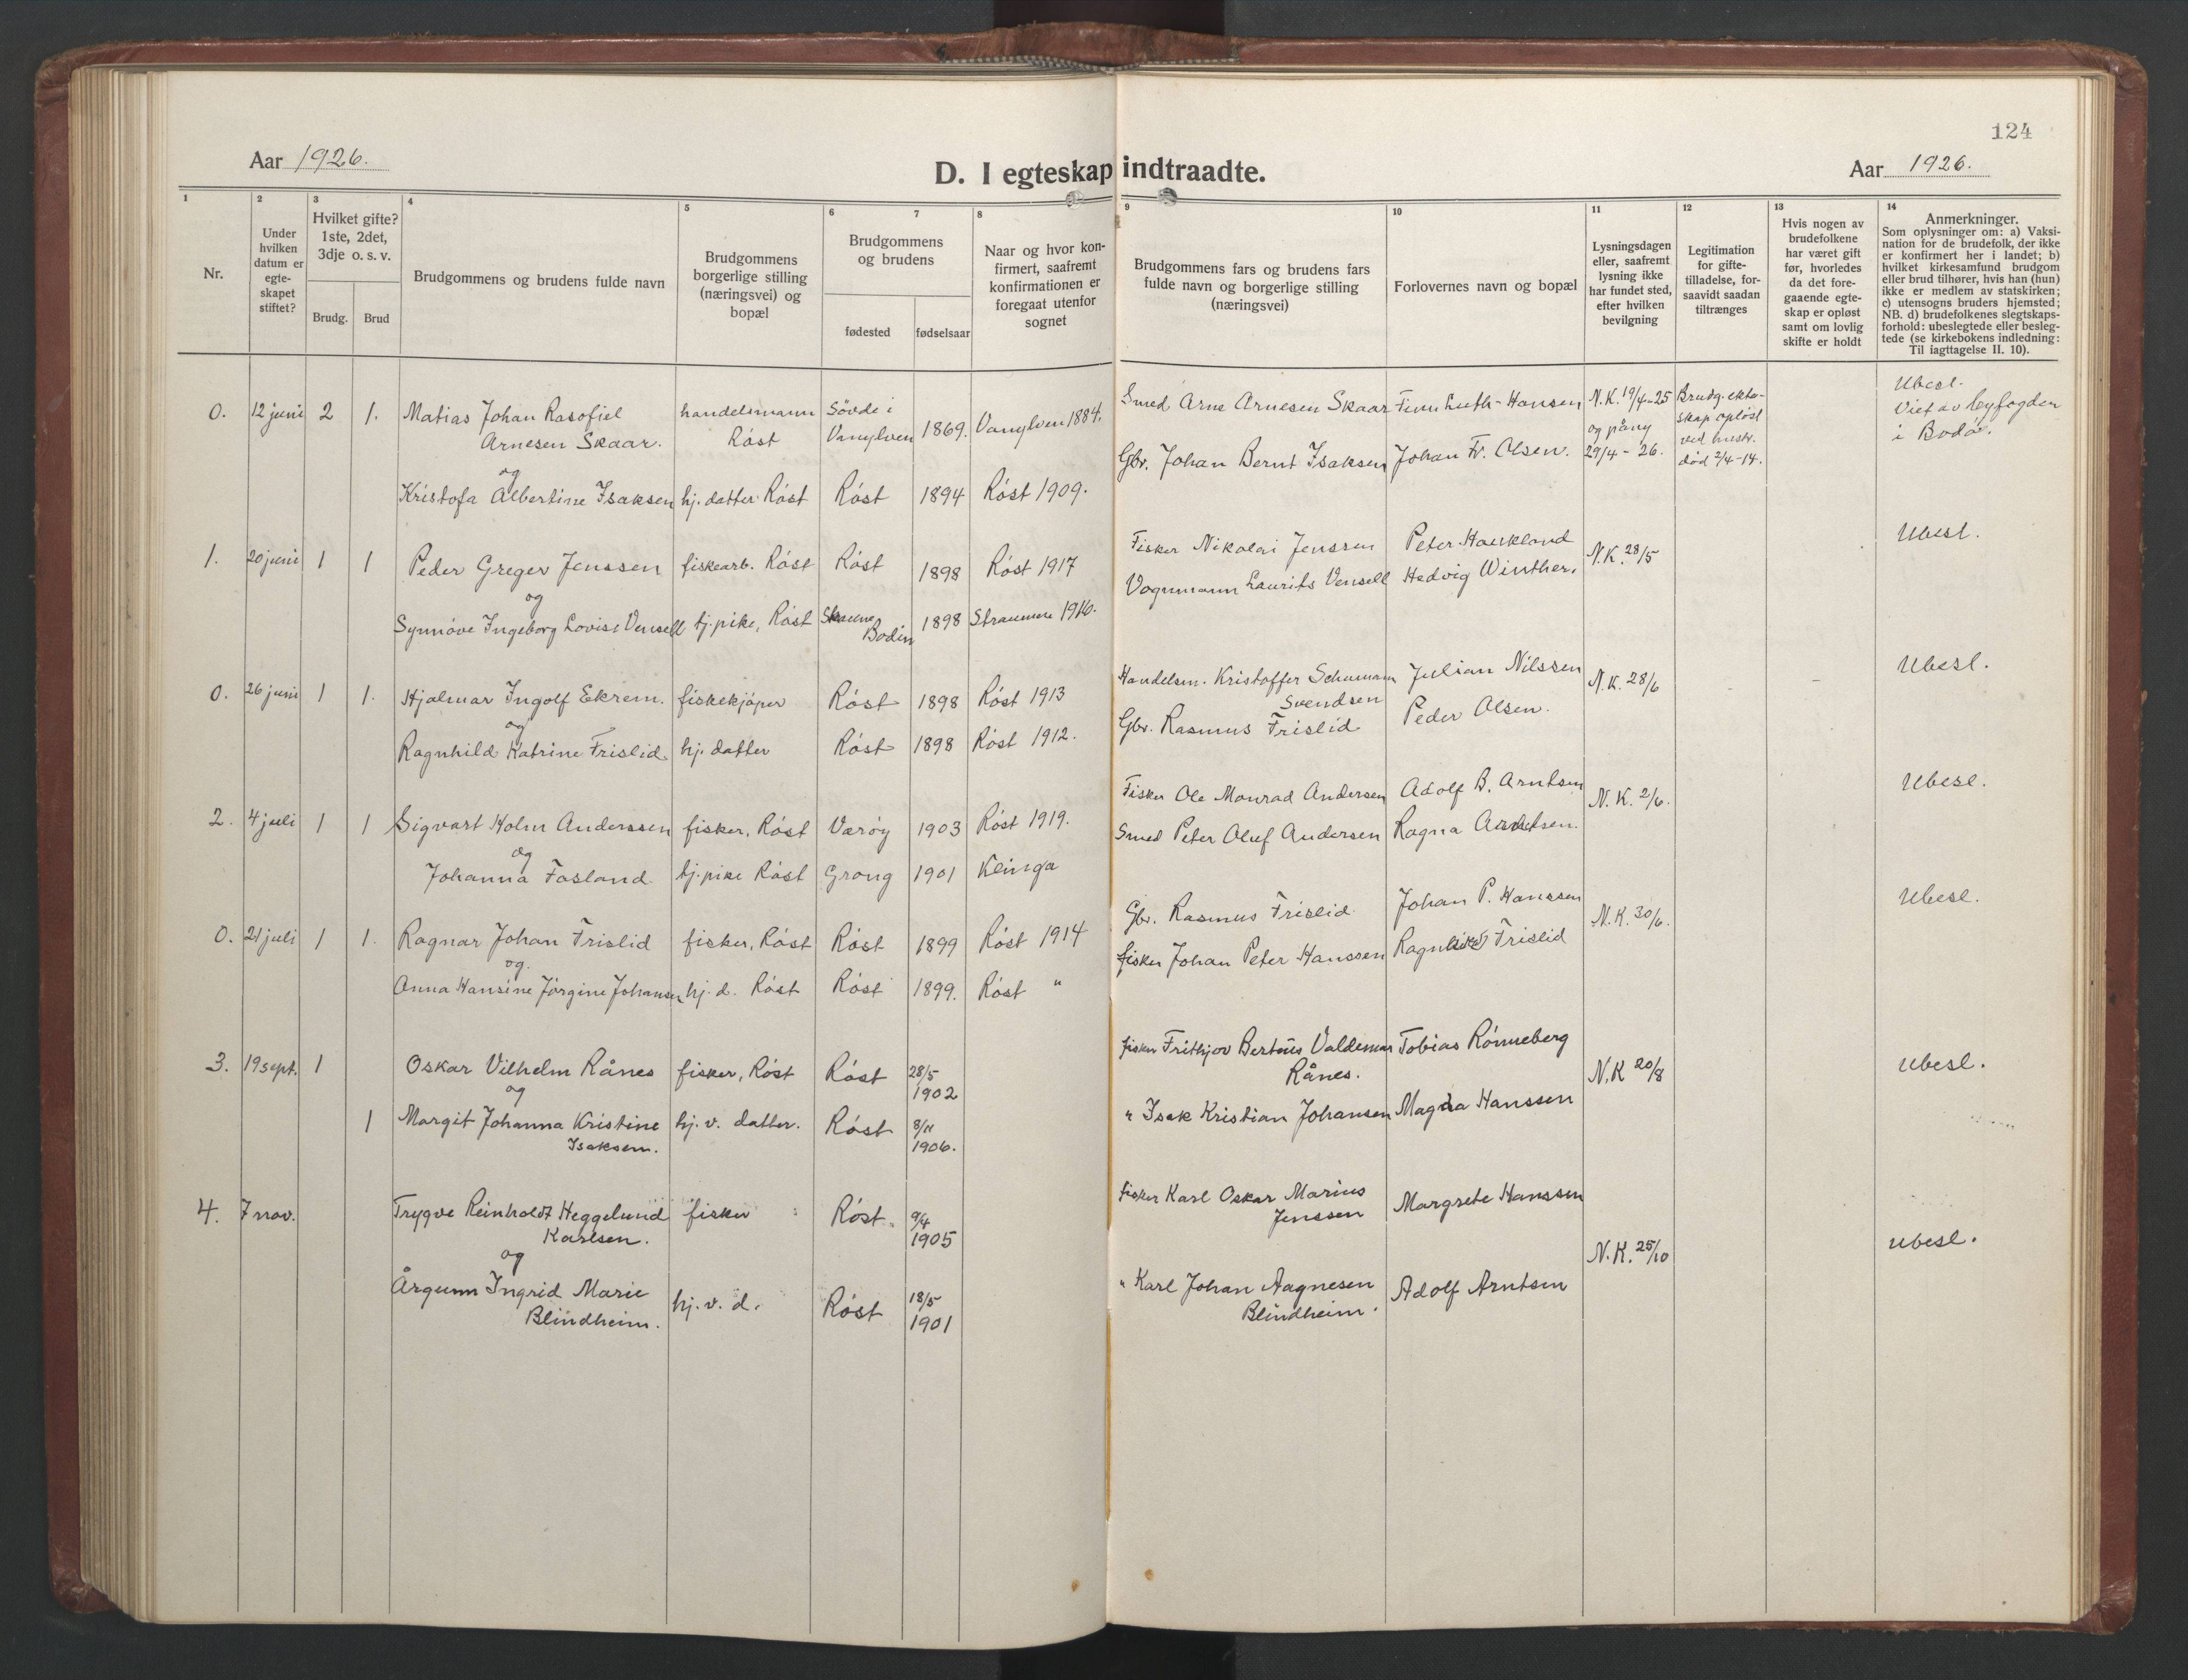 124
Aar 1926.
D. I egteskap indtraadte.
Aar 1926.
1
2
3
4
5
6
7
8
9
10
11
12
13
14
Nr.
Under
hvilken
datum er
egte-
skapet
stiftet?
Hvilket gifte?
1ste, 2det,
3dje o. s. v.
Brudg.
Brud
Brudgommens og brudens fulde navn
Brudgommens
borgerlige stilling
(næringsvei) og
bopæl
Brudgommens
og brudens
fødested
fødselsaar
Naar og hvor kon-
firmert, saafremt
konfirmationen er
foregaat utenfor
sognet
Brudgommens fars og brudens fars
fulde navn og borgerlige stilling
(næringsvei)
Forlovernes navn og bopæl
Lysningsdagen
eller, saafremt
lysning ikke
har fundet sted,
efter hvilken
bevilgning
Legitimation
for gifte-
tilladelse, for-
saavidt saadan
tiltrænges
Hvis nogen av
brudefolkene
har været gift
før, hvorledes
da det fore-
gaaende egte-
skap er opløst
samt om lovlig
skifte er holdt
Anmerkninger.
Som oplysninger om: a) Vaksi-
nation for de brudefolk, der ikke
er konfirmert her i landet; b)
hvilket kirkesamfund brudgom
eller brud tilhører, hvis han (hun)
ikke er medlem av statskirken;
c) utensogns bruders hjemsted;
NB. d) brudefolkenes slegtskaps-
forhold: ubeslegtede eller besleg-
tede (se kirkebokens indledning:
Til iagttagelse II. 10).
0. 12 juni 2 1. Matias Johan Rasofiel
Arnesen Skaar.
og
Kristofa Albertine Isaksen
handelsmann
Røst
hj. datter Røst
Søvde i
Vanylven
Røst
1869.
1894
Vanylven 1884.
Røst 1909.
Smed Arne Arnesen Skaar
Gbr. Johan Bernt Isaksen
Finn Luth-Hansen
Johan Fr. Olsen.
N.K. 19/4-25
og påny
29/4-26.
Brudg. ekte-
skap opløst
ved hustr.
død 2/4-14.
Ubesl.
Viet av byfogden
i Bodø.
1. 20 juni 1 1 Peder Greger Jenssen
og
Synnøve Ingeborg Lovise Vensell
fiskearb. Røst
tj. pike, Røst
Røst
Straume
Bodin
1898
1898
Røst 1917
Straumen 1916.
Fisker Nikolai Jenssen
Vognmann Laurits Vensell
Peter Haukland
Hedvig Winther.
N.K. 28/5
Ubesl.
0. 26 juni 1 1. Hjalmar Ingolf Ekrem.
og
Ragnhild Katrine Frislid
fiskekjøper
hj. datter
Røst
Røst
1898
1898
Røst 1913
Røst 1912.
Handelsm. Kristoffer Schumann
Svendsen
Gbr. Rasmus Frislid
Julian Nilssen
Peder Olsen.
N.K. 28/6
Ubesl.
2. 4 juli 1 1 Sigvart Holm Anderssen
og
Johanna Fosland.
fisker, Røst
tj. pike Røst
Værøy
Grong
1903
1901
Røst 1919.
Klinga
Fisker Ole Monrad Andersen
Smed Peter Oluf Andersen
Adolf B. Arntsen
Ragna
N.K. 2/6.
Ubesl.
0. 21 juli 1 1. Ragnar Johan Frislid
og
Anna Hansine Jørgine Johansen
fisker, Røst
hj. d. Røst
Røst
Røst
1899
1899.
Røst 1914
Røst "
Gbr. Rasmus Frislid
fisker Johan Peter Hanssen
Johan P. Hanssen
Ragnhild Frislid
N.K. 30/6.
Ubesl.
3. 19 sept. 1 Oskar Vilhelm Rånes
og
1 Margit Johanna Kristine
Isaksen.
fisker, Røst
hj. v. datter.
Røst
Røst
28/5
1902
8/11
1906.
fisker Frithjov Bertens Valdemar
Rånes.
" Isak Kristian Johansen
Tobias Rønneberg
Magna Hanssen
N.K 20/8
Ubesl.
4. 7 nov. Trygve Reinholdt Heggelund
Karlsen.
og
Årgunn Ingrid Marie
Blindheim.
fisker
hj. v. d.
Røst
Røst
9/4
1905
18/5
1901
fisker Karl Oskar Marius
Jenssen
" Karl Johan Aagnesen
Blindheim.
Margrete Hanssen
Adolf Arntsen
N.K. 25/10
ubesl.